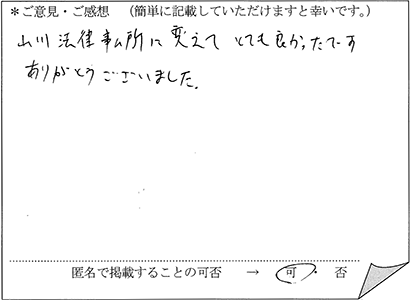 ＊ご意見・ご感想　（簡単に記載していただけますと幸いです。）
山川法律事ム所に変えてとても良かったです
ありがとうございました。
匿名で掲載することの可否　→　可・否